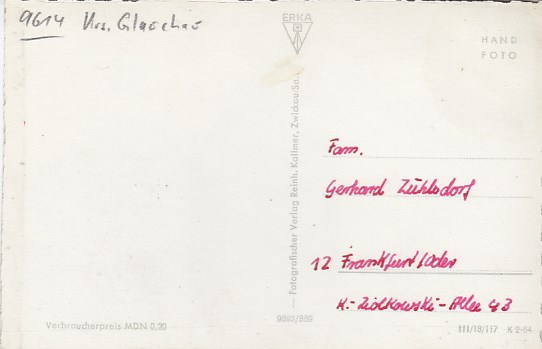 9614 Krs. Glauchau
ERKA
HAND
FOTO
Fotografischer Verlag Reinh. Kallmer, Zwickau/Sa.
Fam.
Gerhard Zühlsdorf
12 Frankfurt/Oder
K.-Ziolkowski-Allee 43
Verbraucherpreis MDN 0,20
III/18/117 K 2-64